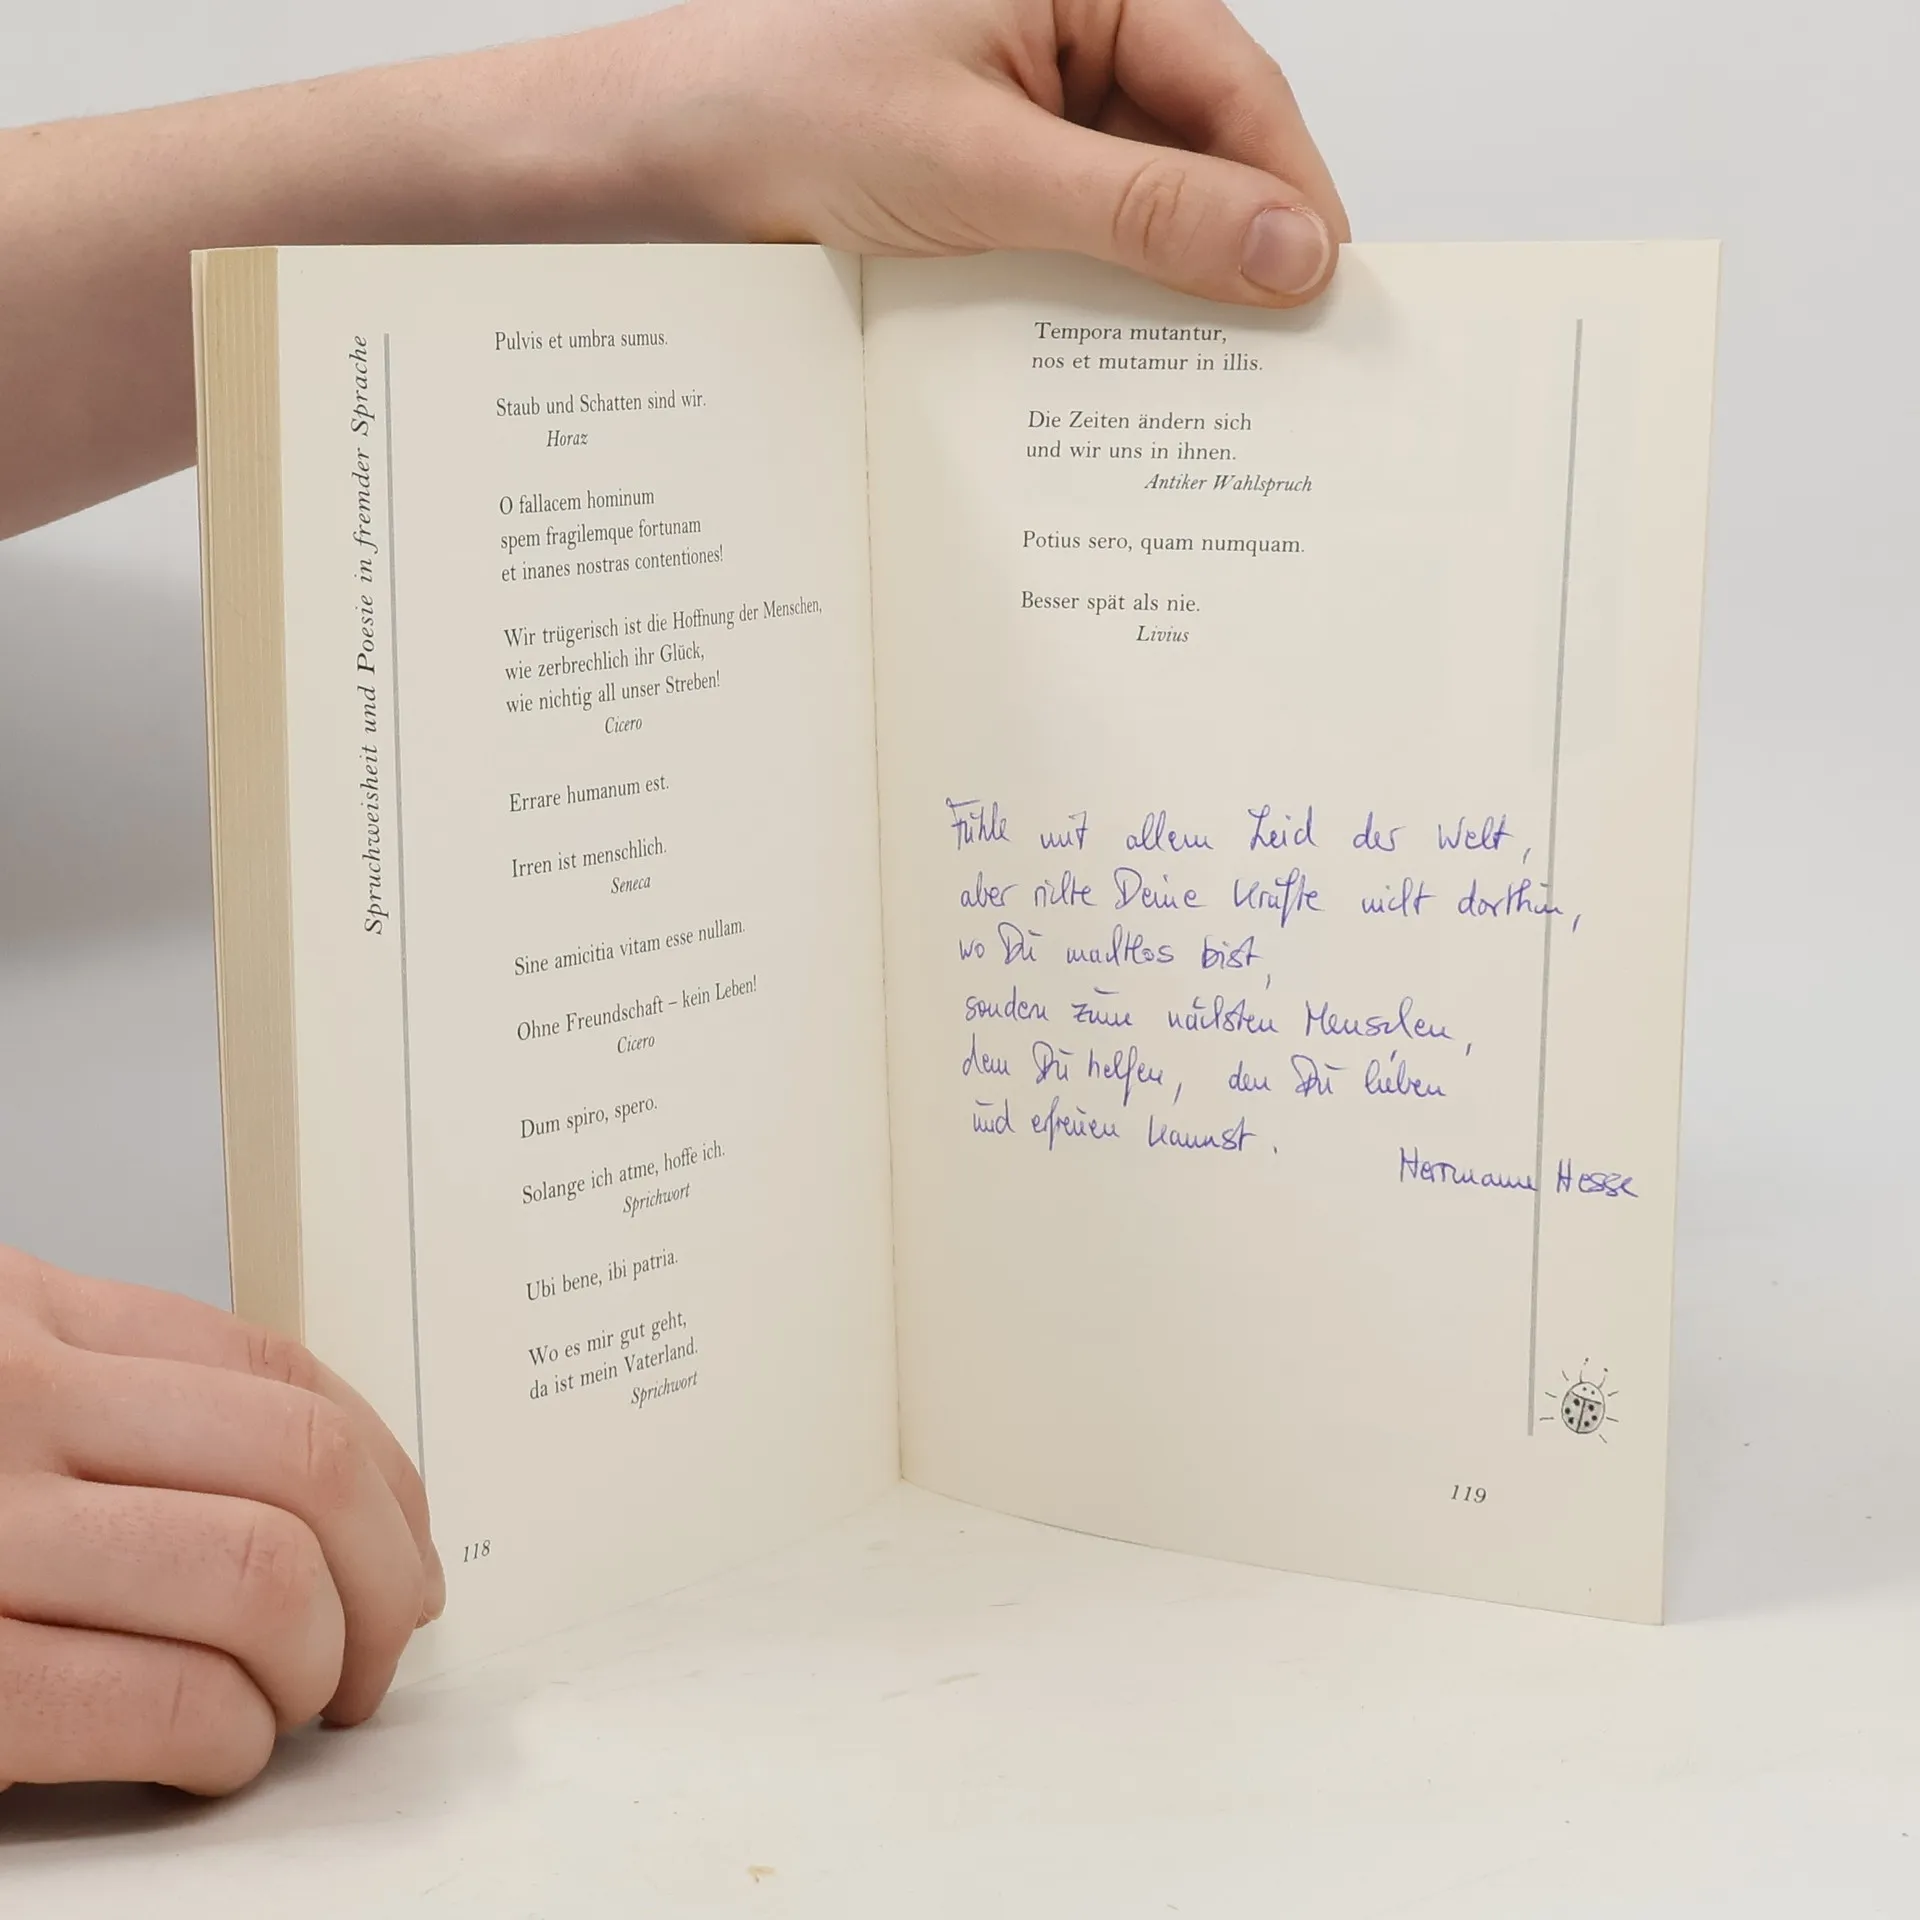 Spruchweisheit und Poesie in fremder Sprache
Pulvis et umbra sumus.
Staub und Schatten sind wir.
Horaz
O fallacem hominum
spem fragilemque fortunam
et inanes nostras contentiones!
Wir trügerisch ist die Hoffnung der Menschen,
wie zerbrechlich ihr Glück,
wie nichtig all unser Streben!
Cicero
Errare humanum est.
Irren ist menschlich.
Seneca
Sine amicitia vitam esse nullam.
Ohne Freundschaft – kein Leben!
Cicero
Dum spiro, spero.
Solange ich atme, hoffe ich.
Sprichwort
Ubi bene, ibi patria.
Wo es mir gut geht,
da ist mein Vaterland.
Sprichwort
118
Tempora mutantur,
nos et mutamur in illis.
Die Zeiten ändern sich
und wir uns in ihnen.
Antiker Wahlspruch
Potius sero, quam numquam.
Besser spät als nie.
Livius
Fühle mit allem Leid der Welt,
aber richte Deine Kräfte nicht dorthin,
wo Du machtlos bist,
sondern zum nächsten Menschen,
dem Du helfen, den Du lieben
und erfreuen kannst.
Herrmann Hesse
119